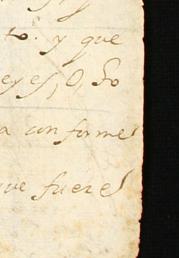 to. y que
eyes, O, so
a conforme
que fuere